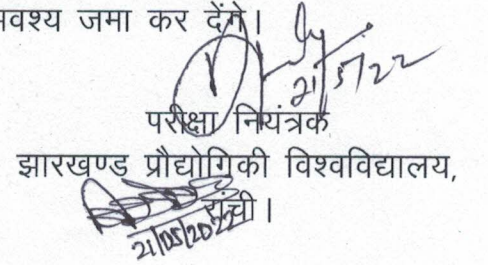 वश्य जमा कर देंगे।
21/5/22
परीक्षा नियंत्रक
झारखण्ड प्रौद्योगिकी विश्वविद्यालय,
रांची।
21/05/2022